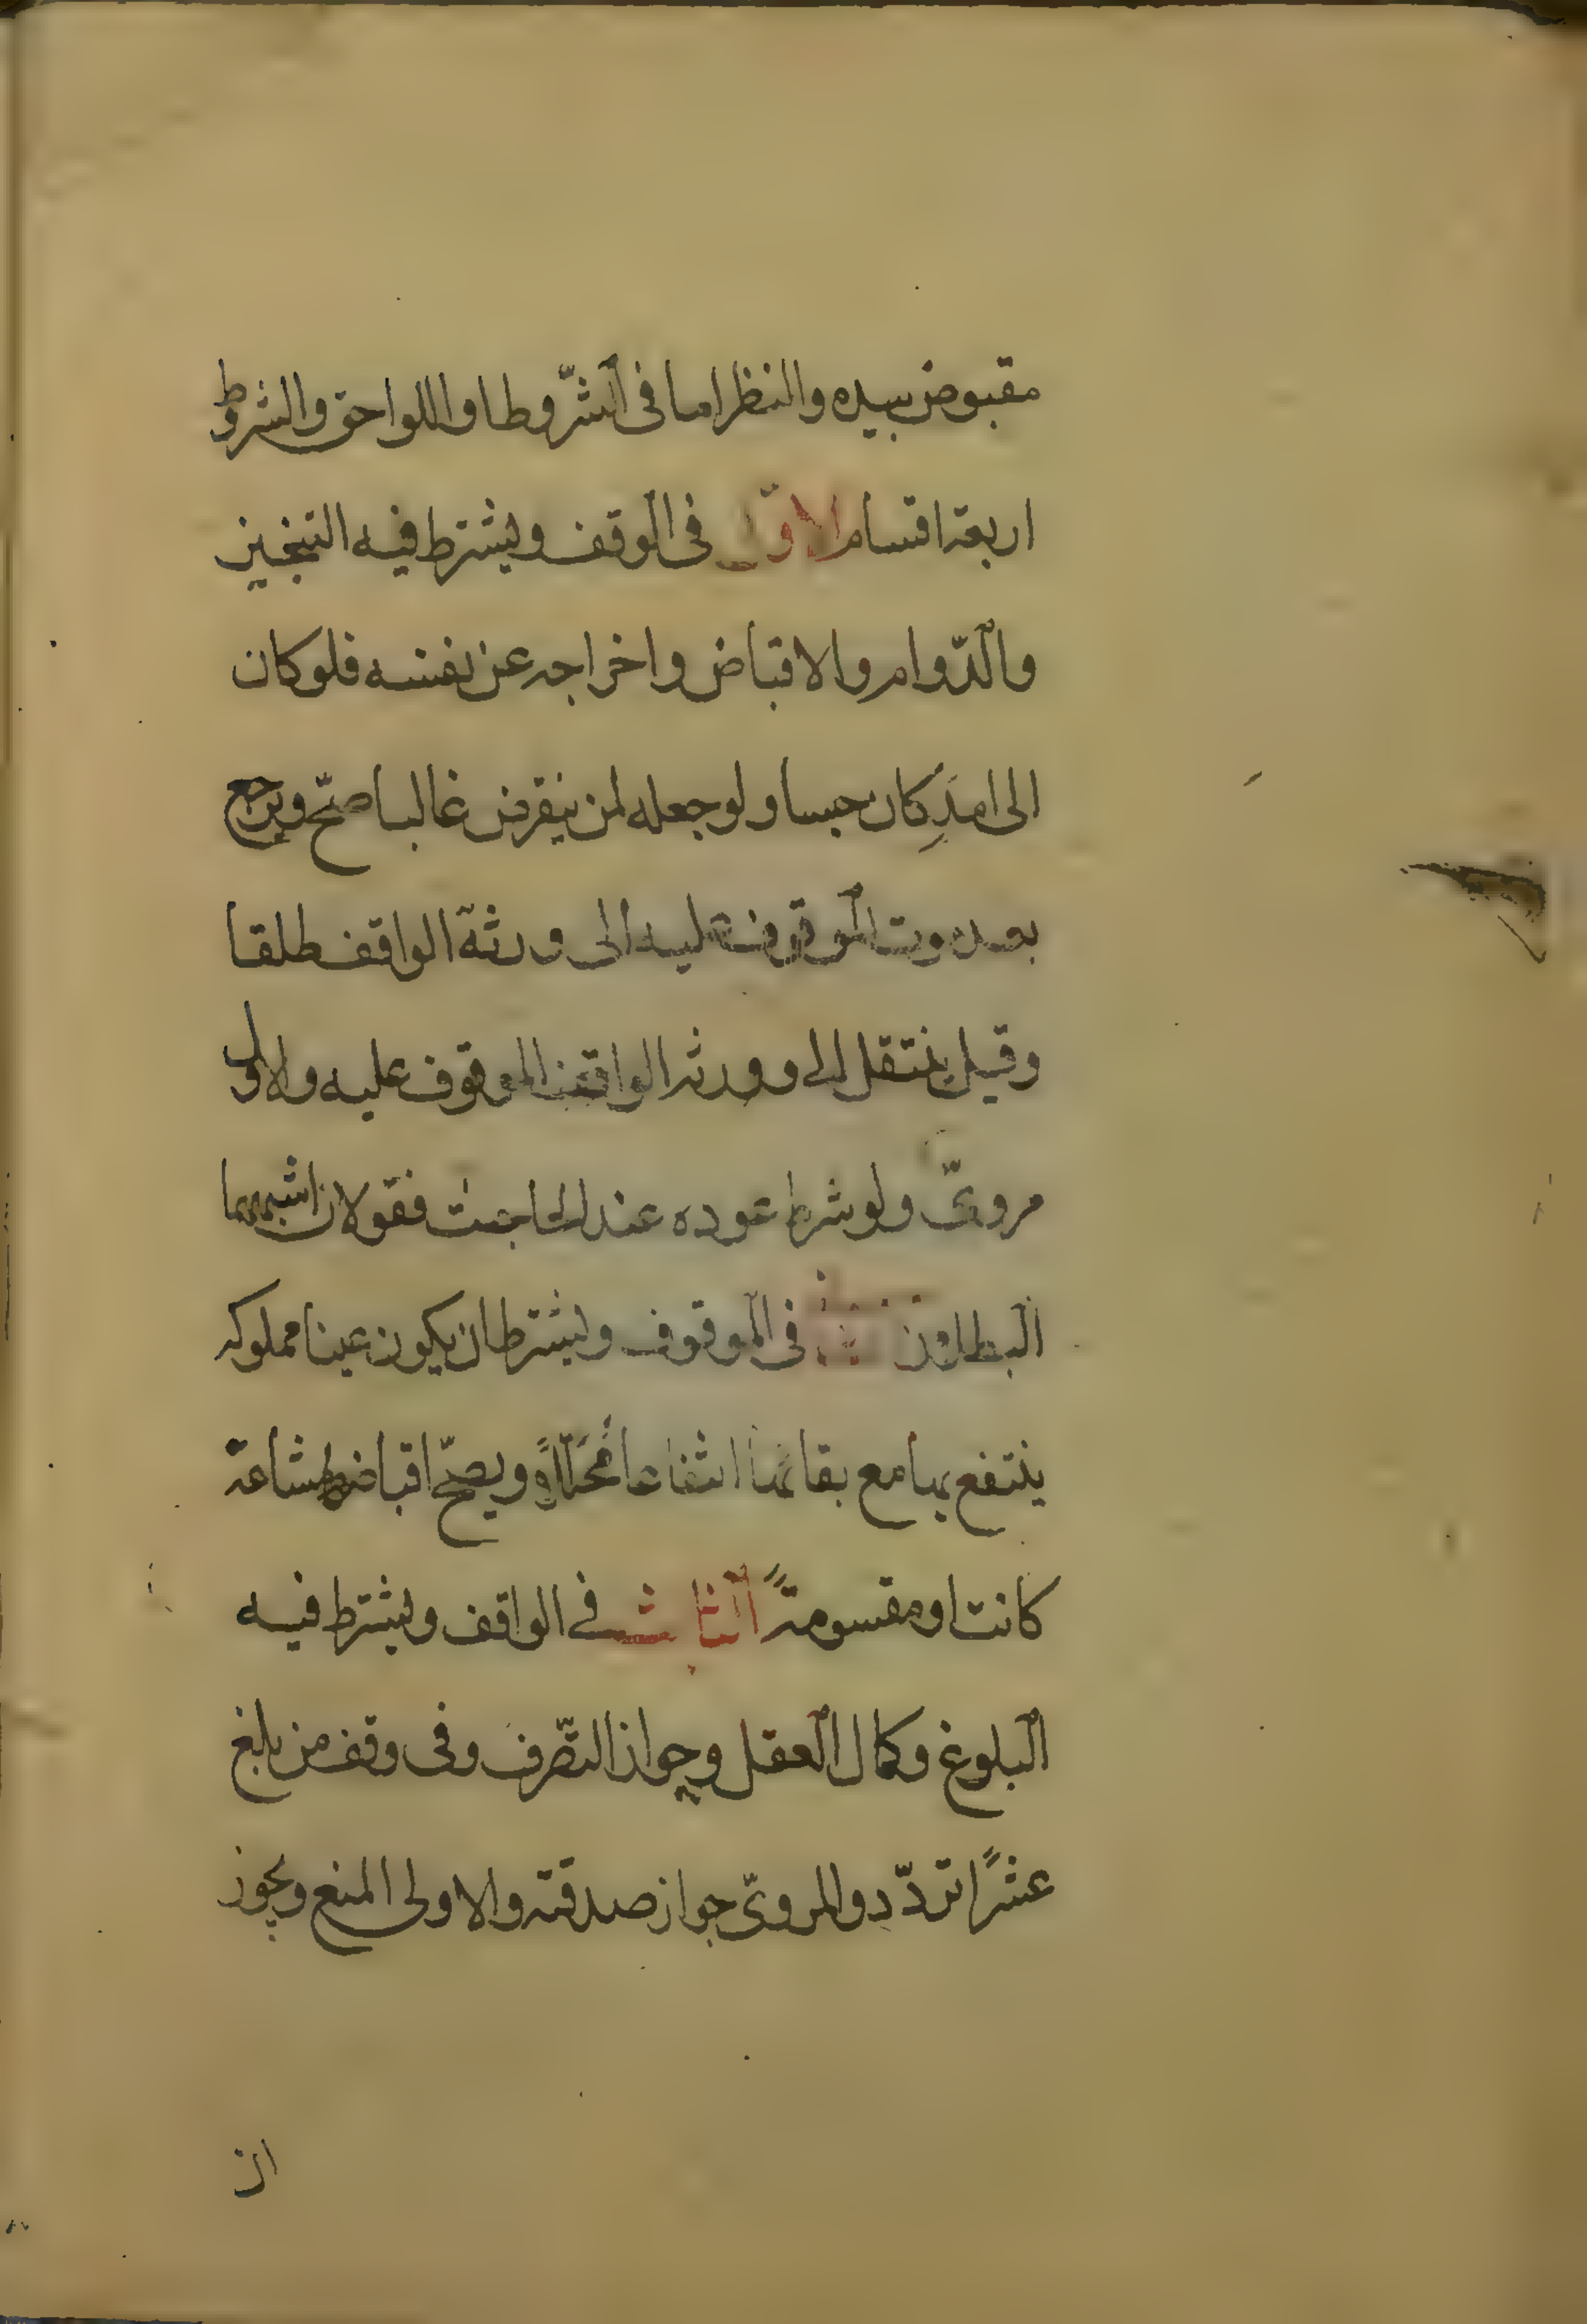 مقبوض بیده والنظر اما فی الشّروط او اللواحق والشروط
اربعة اقسام الاوّل فی الوقف ویشترط فیه التنجیز
والدّوام والاقباض واخراجه عن نفسه فلو کان
الی امدٍ کان حبسا ولو جعله لمن ینقرض غالبا صحّ ویرجع
بعد موت الموقوف علیه الی ورثة الواقف طلقا
وقیل ینتقل الی وورثة الواقف الموقوف علیه والاول
مرویّ ولو شرط عوده عند الحاجة فقولان اشبههما
البطلان فی الموقوف ویشترط ان یکون عینا مملوکة
ینتفع بها مع بقائها انتفاعا مُحَلّلاً ویصحّ اقباضها مشاعة
کانت او مقسومةً الثالث فی الواقف ویشترط فیه
البلوغ وکمال العقل وجواز التّصرف وفی وقف من بلغ
عشرًا تردّد والمرویّ جواز صدقته والاولی المنع ویجوز
ان